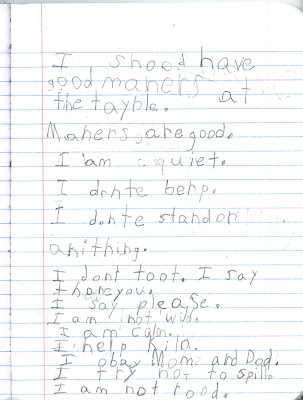 I shood have
good maners at
the tayble.
Maners are good.
I am quiet.
I donte berp.
I donte standon
anithing.
I dont toot. I say
thancyou.
I say please.
I am not wild.
I am calm.
I help Kila.
I obay Mom and Dad.
I try not to spill.
I am not rood.